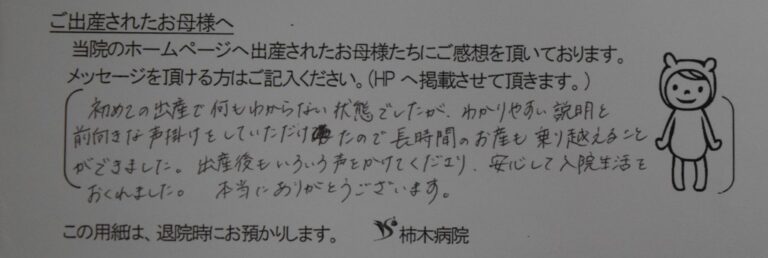 ご出産されたお母様へ
当院のホームページへ出産されたお母様たちにご感想を頂いております。
メッセージを頂ける方はご記入ください。(HP へ掲載させて頂きます。)
初めての出産で何もわからない状態でしたが、わかりやすい説明と
前向きな声掛けをしていただけたので長時間のお産も乗り越えること
ができました。出産後もいろいろ声をかけてくださり、安心して入院生活を
おくれました。 本当にありがとうございます。
この用紙は、退院時にお預かりします。 柿木病院